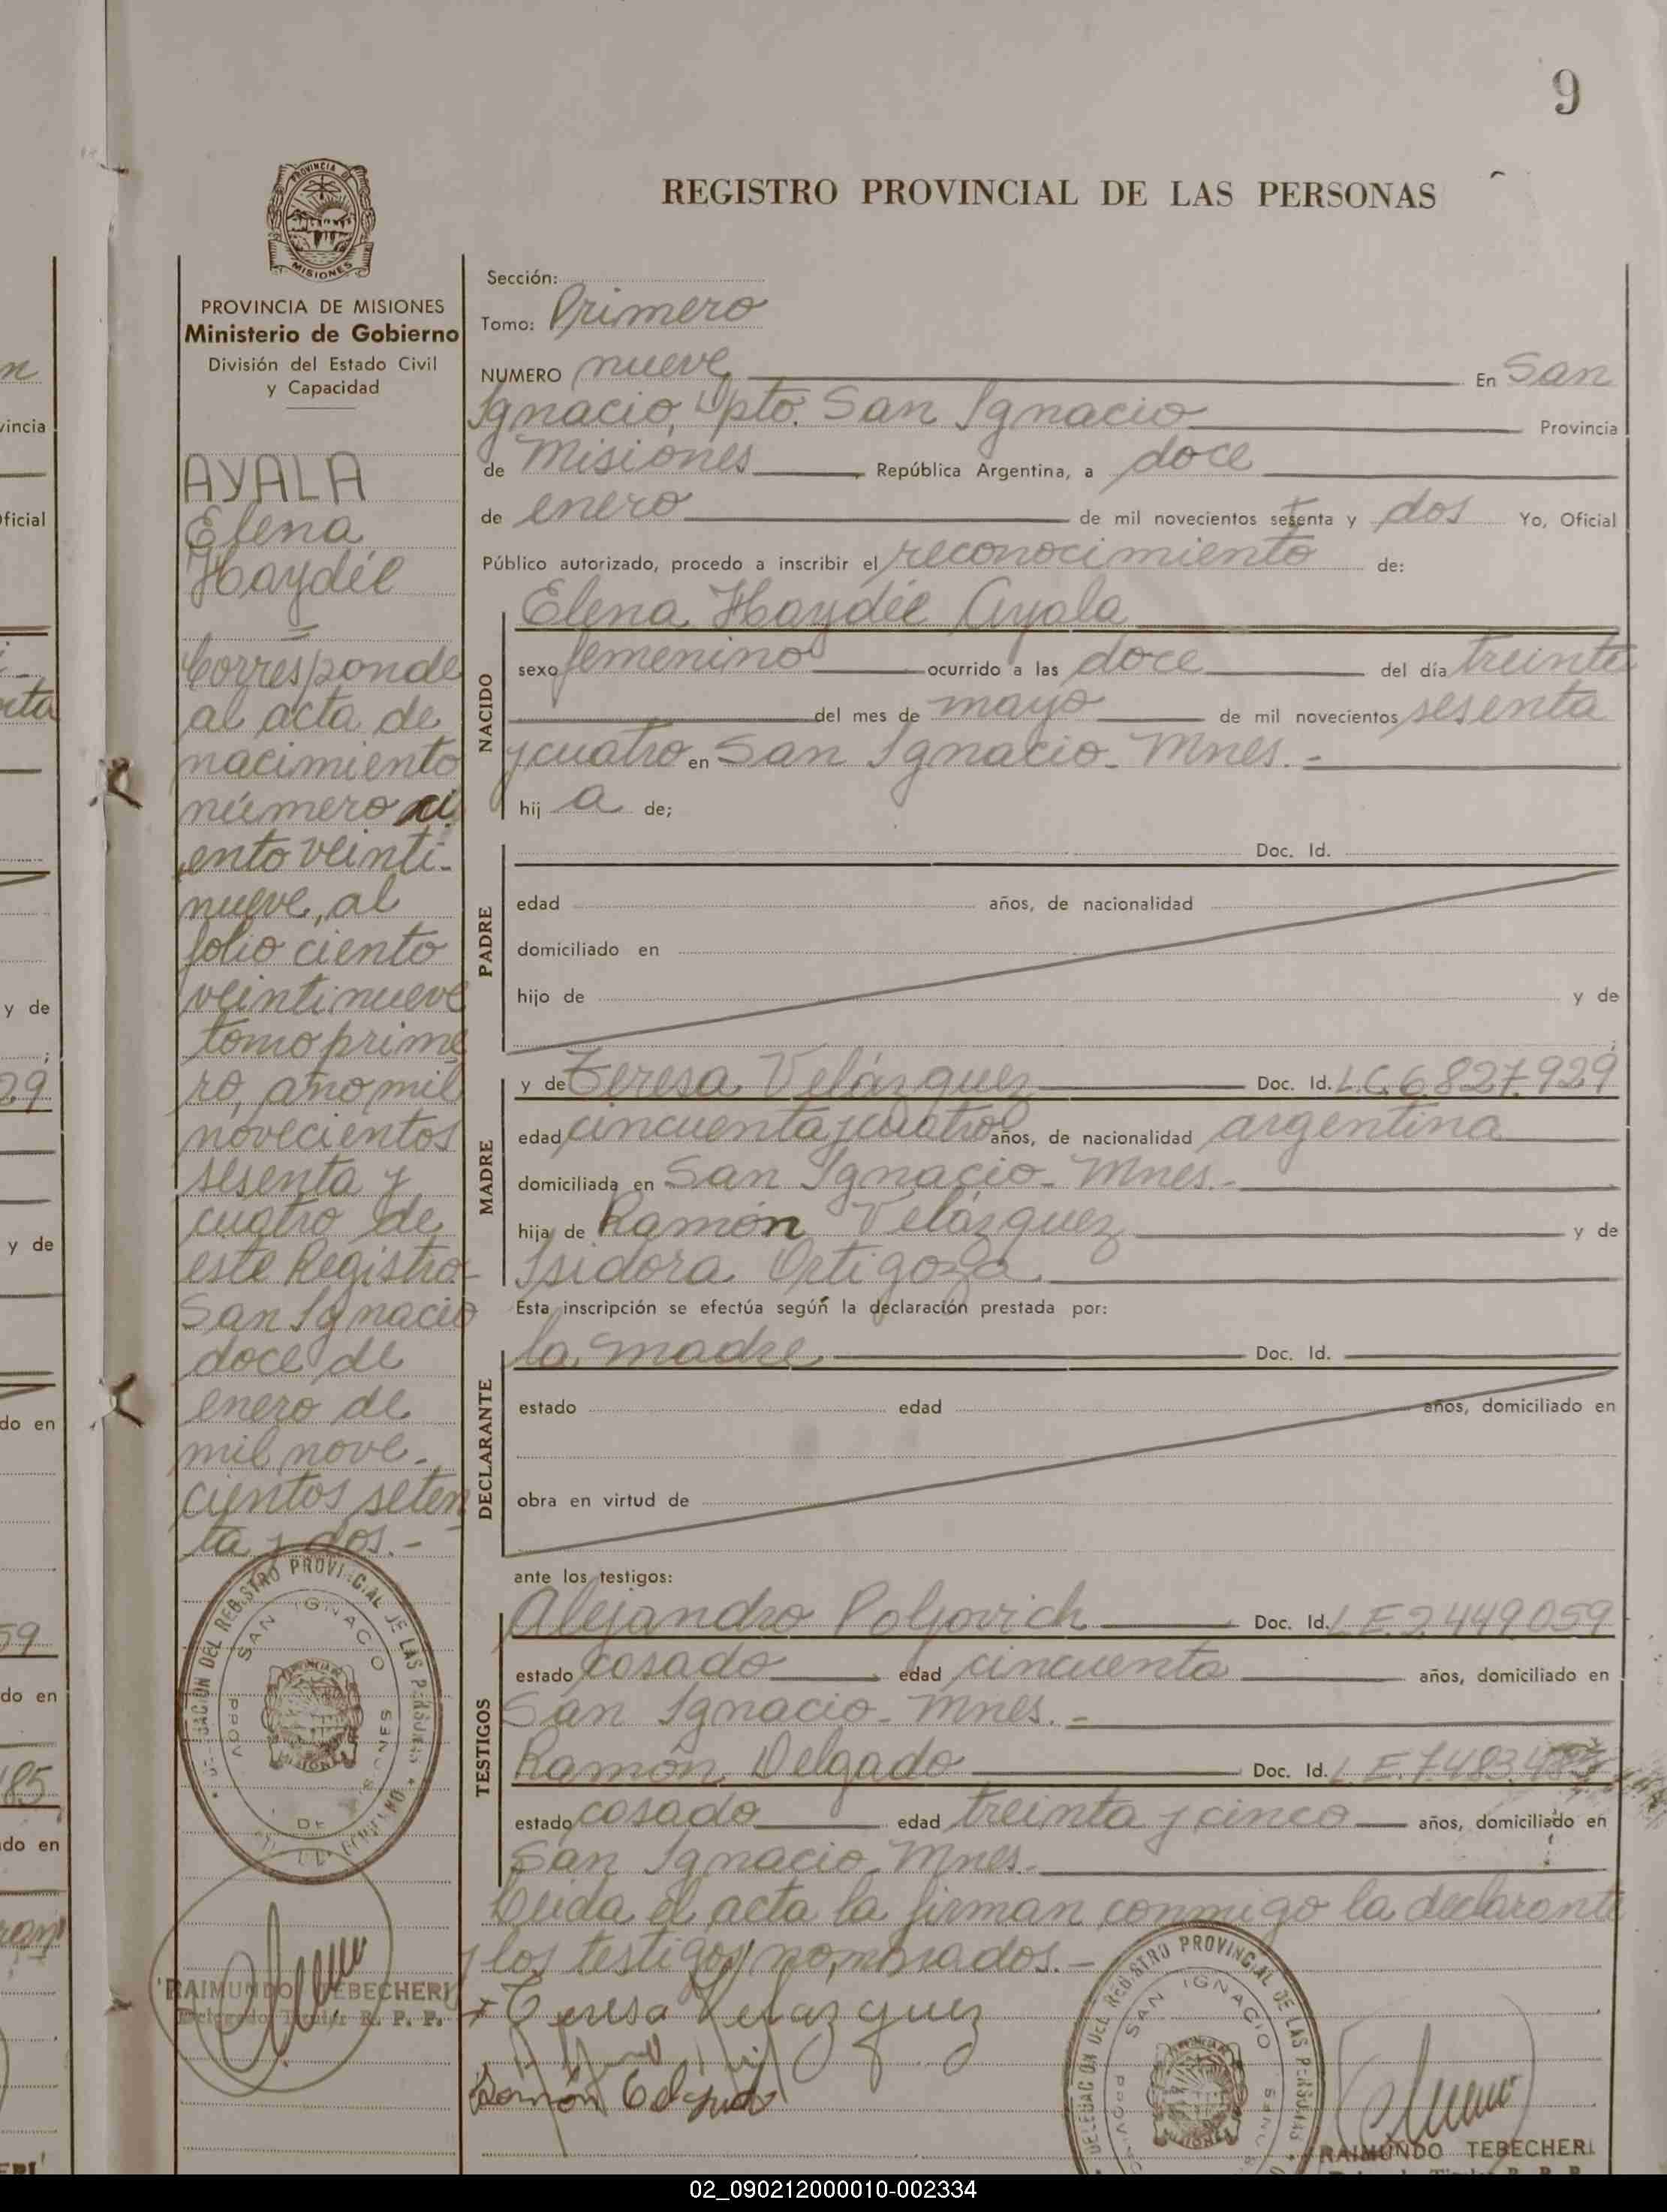 9
REGISTRO PROVINCIAL DE LAS PERSONAS
PROVINCIA DE
MISIONES
PROVINCIA DE MISIONES
Ministerio de Gobierno
División del Estado Civil
y Capacidad
AYALA
Elena
Haydée
Corresponde
al acta de
nacimiento
número ci
ento veinti-
nueve, al
folio ciento
veintinueve
tomo prime
ro, año mil
novecientos
sesenta y
cuatro de
este Registro-
San Ignacio
doce de
enero de
mil nove-
cientos seten
ta y dos.-
RAIMUNDO TEBECHERI
Delegado Titular R. P. P.
Sección:
Tomo: Primero
NUMERO nueve En San
Ignacio, Dpto. San Ignacio Provincia
de Misiones República Argentina, a doce
de enero de mil novecientos setenta y dos Yo, Oficial
Público autorizado, procedo a inscribir el reconocimiento de:
NACIDO
Elena Haydée Ayala
sexo femenino ocurrido a las doce del día treinta
del mes de mayo de mil novecientos sesenta
y cuatro en San Ignacio- Mnes.-
hij a de;
PADRE
Doc. Id.
edad años, de nacionalidad
domiciliado en
hijo de y de
MADRE
y de Teresa Velázquez Doc. Id. L.C.6.827.929
edad cincuenta y cuatro años, de nacionalidad argentina
domiciliada en San Ignacio- Mnes.-
hija de Ramón Velázquez y de
Isidora Ortigoza
Esta inscripción se efectúa según la declaración prestada por:
DECLARANTE
la madre Doc. Id.
estado edad años, domiciliado en
obra en virtud de
ante los testigos:
TESTIGOS
Alejandro Doc. Id. L.E.2.449.059
estado casado edad cincuenta años, domiciliado en
San Ignacio- Mnes.-
Ramón Delgado Doc. Id. L.E.7.483.
estado casado edad treinta y cinco años, domiciliado en
San Ignacio- Mnes.-
Leida el acta la firman conmigo la declarante
y los testigos nombrados.-
Teresa Velazquez
Ramón Delgado
DELEGACION DEL REGISTRO PROVINCIAL DE LAS PERSONAS
SAN IGNACIO
RAIMUNDO TEBECHERI
02_090212000010-002334